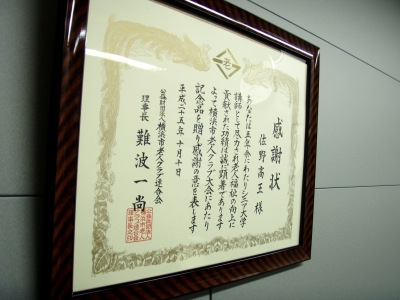 老
感謝状
佐野高王様
あなたは五ケ年にわたりシニア大学
講師として尽力され老人福祉の向上に
貢献された功績は誠に顕著であります
よって横浜市老人クラブ大会にあたり
記念品を贈り感謝の意を表します
平成二十五年十月十日
公益財団法人横浜市老人クラブ連合会
理事長 難波一尚